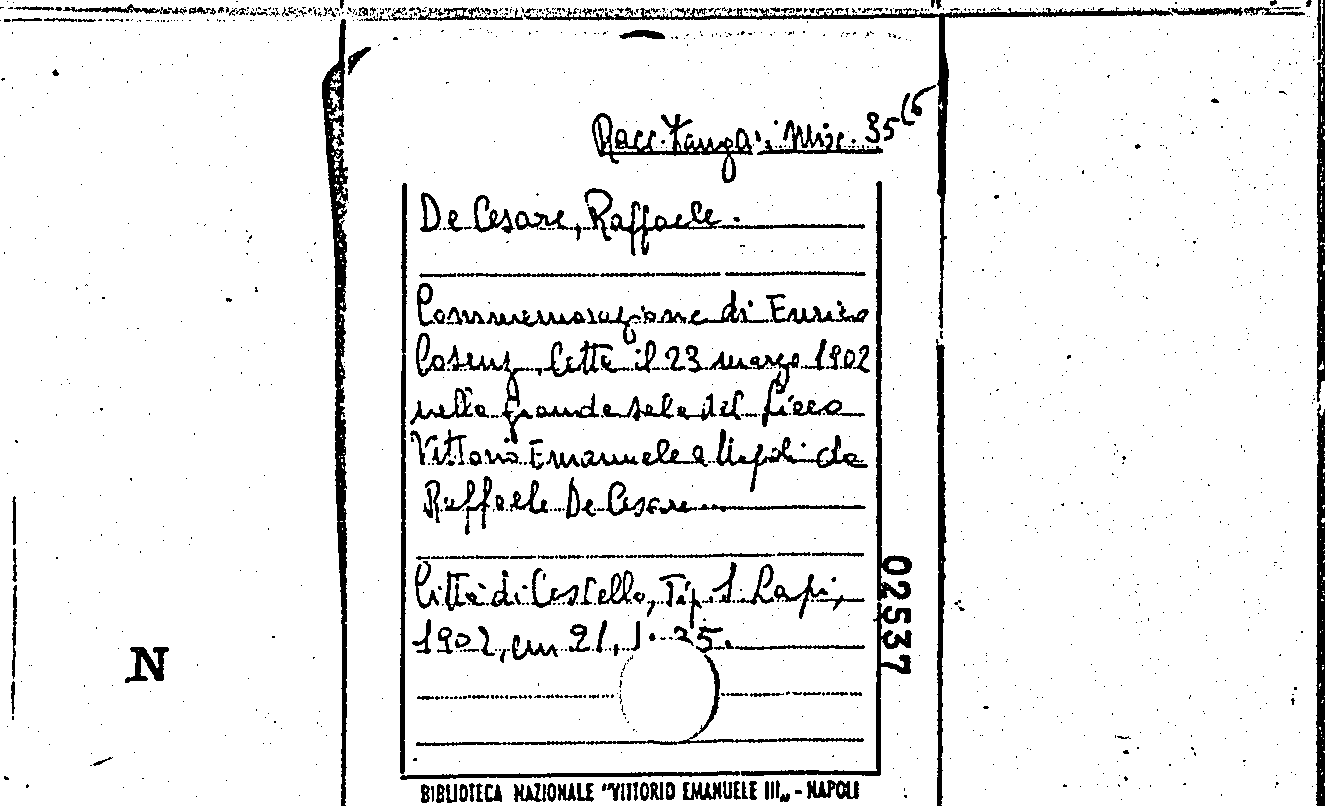 Racc. Zanga. Misc. 35(6
De Cesare, Raffaele.
Commemorazione di Enrico
Cosenz, letta il 23 marzo 1902
nella grande sala del Liceo
Vittorio Emanuele a Napoli da
Raffaele De Cesare...
Città di Castello, Tip. S. Lapi,
1902, cm 21, 35.
02537
N
BIBLIOTECA NAZIONALE "VITTORIO EMANUELE III„ - NAPOLI